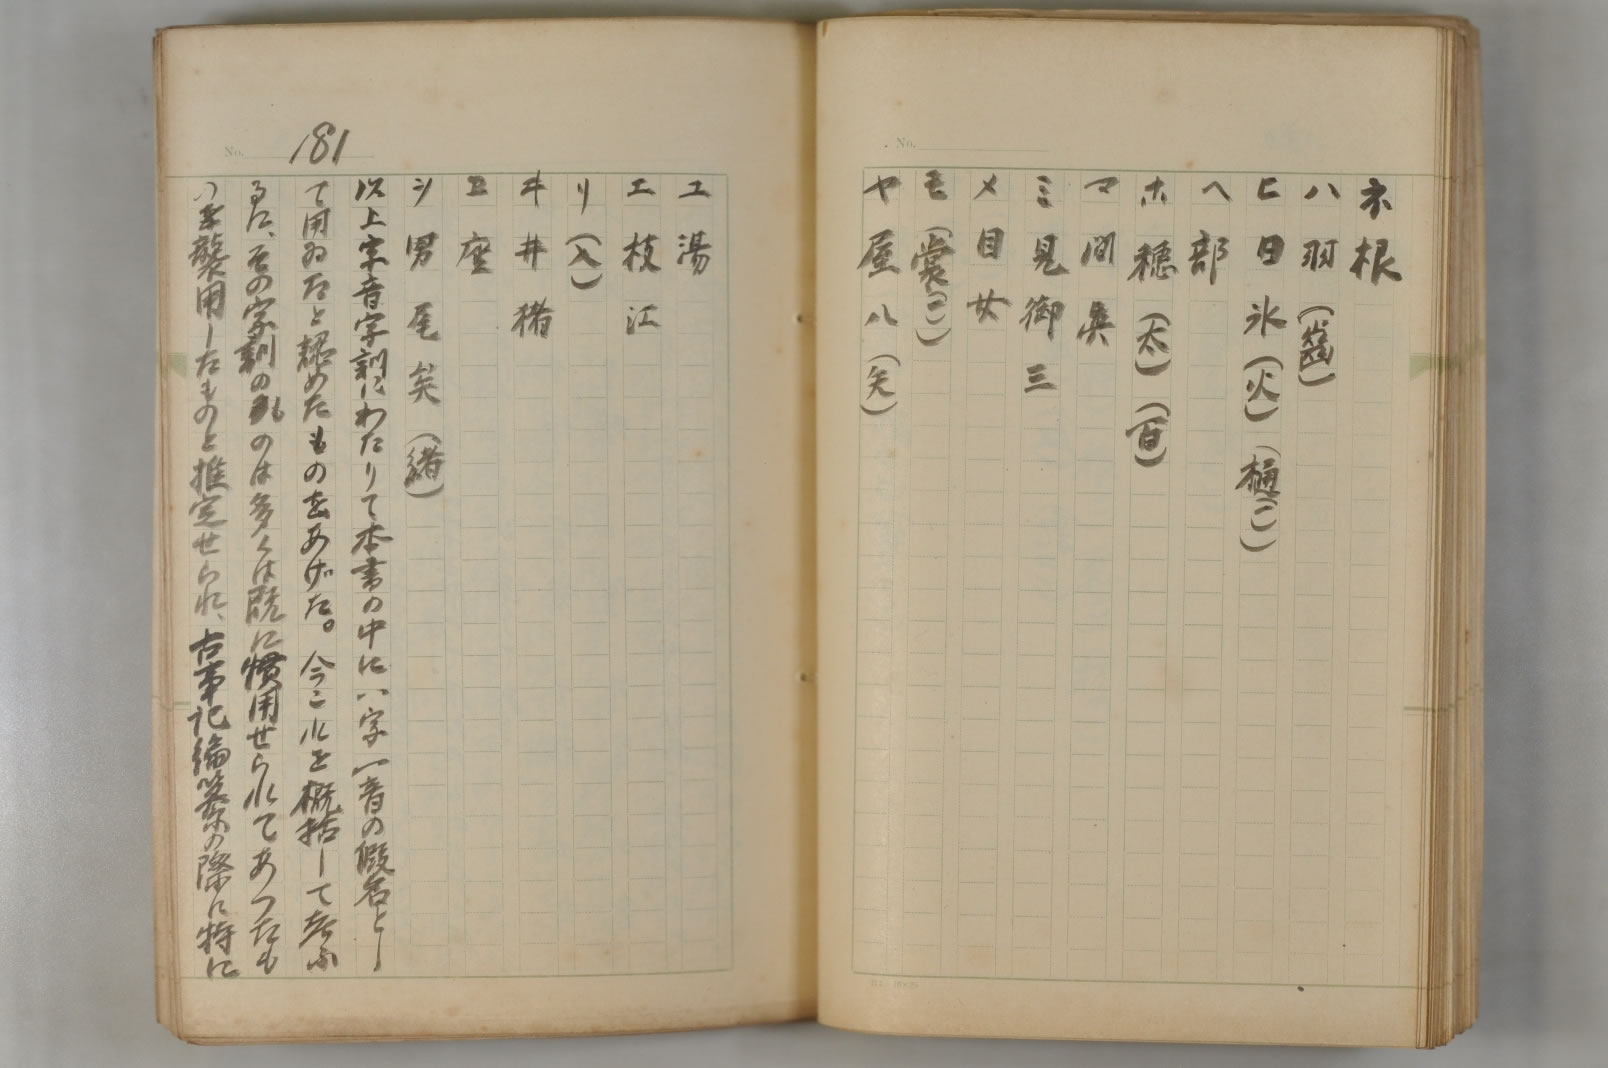 No.
ネ 根
ハ 羽
ヒ 日 氷 (火) (樋(一))
ヘ 部
ホ 穂 (太) (百)
マ 間 眞
ミ 見 御 三
メ 目 女
モ (裳(一))
ヤ 屋 八 (矢)
No. 181
ユ 湯
エ 枝 江
リ (入)
ヰ 井 猪
ヱ 座
ヲ 男 尾 矣 (緒)
以上字音字訓にわたりて本書の中に八字一音の假名とし
て用ゐたと認めたものをあげた。今これを概括して考ふ
るに、その字訓のものは多くは既に慣用せられてあつたも
のを襲用したものと推定せられ、古事記編纂の際に特に